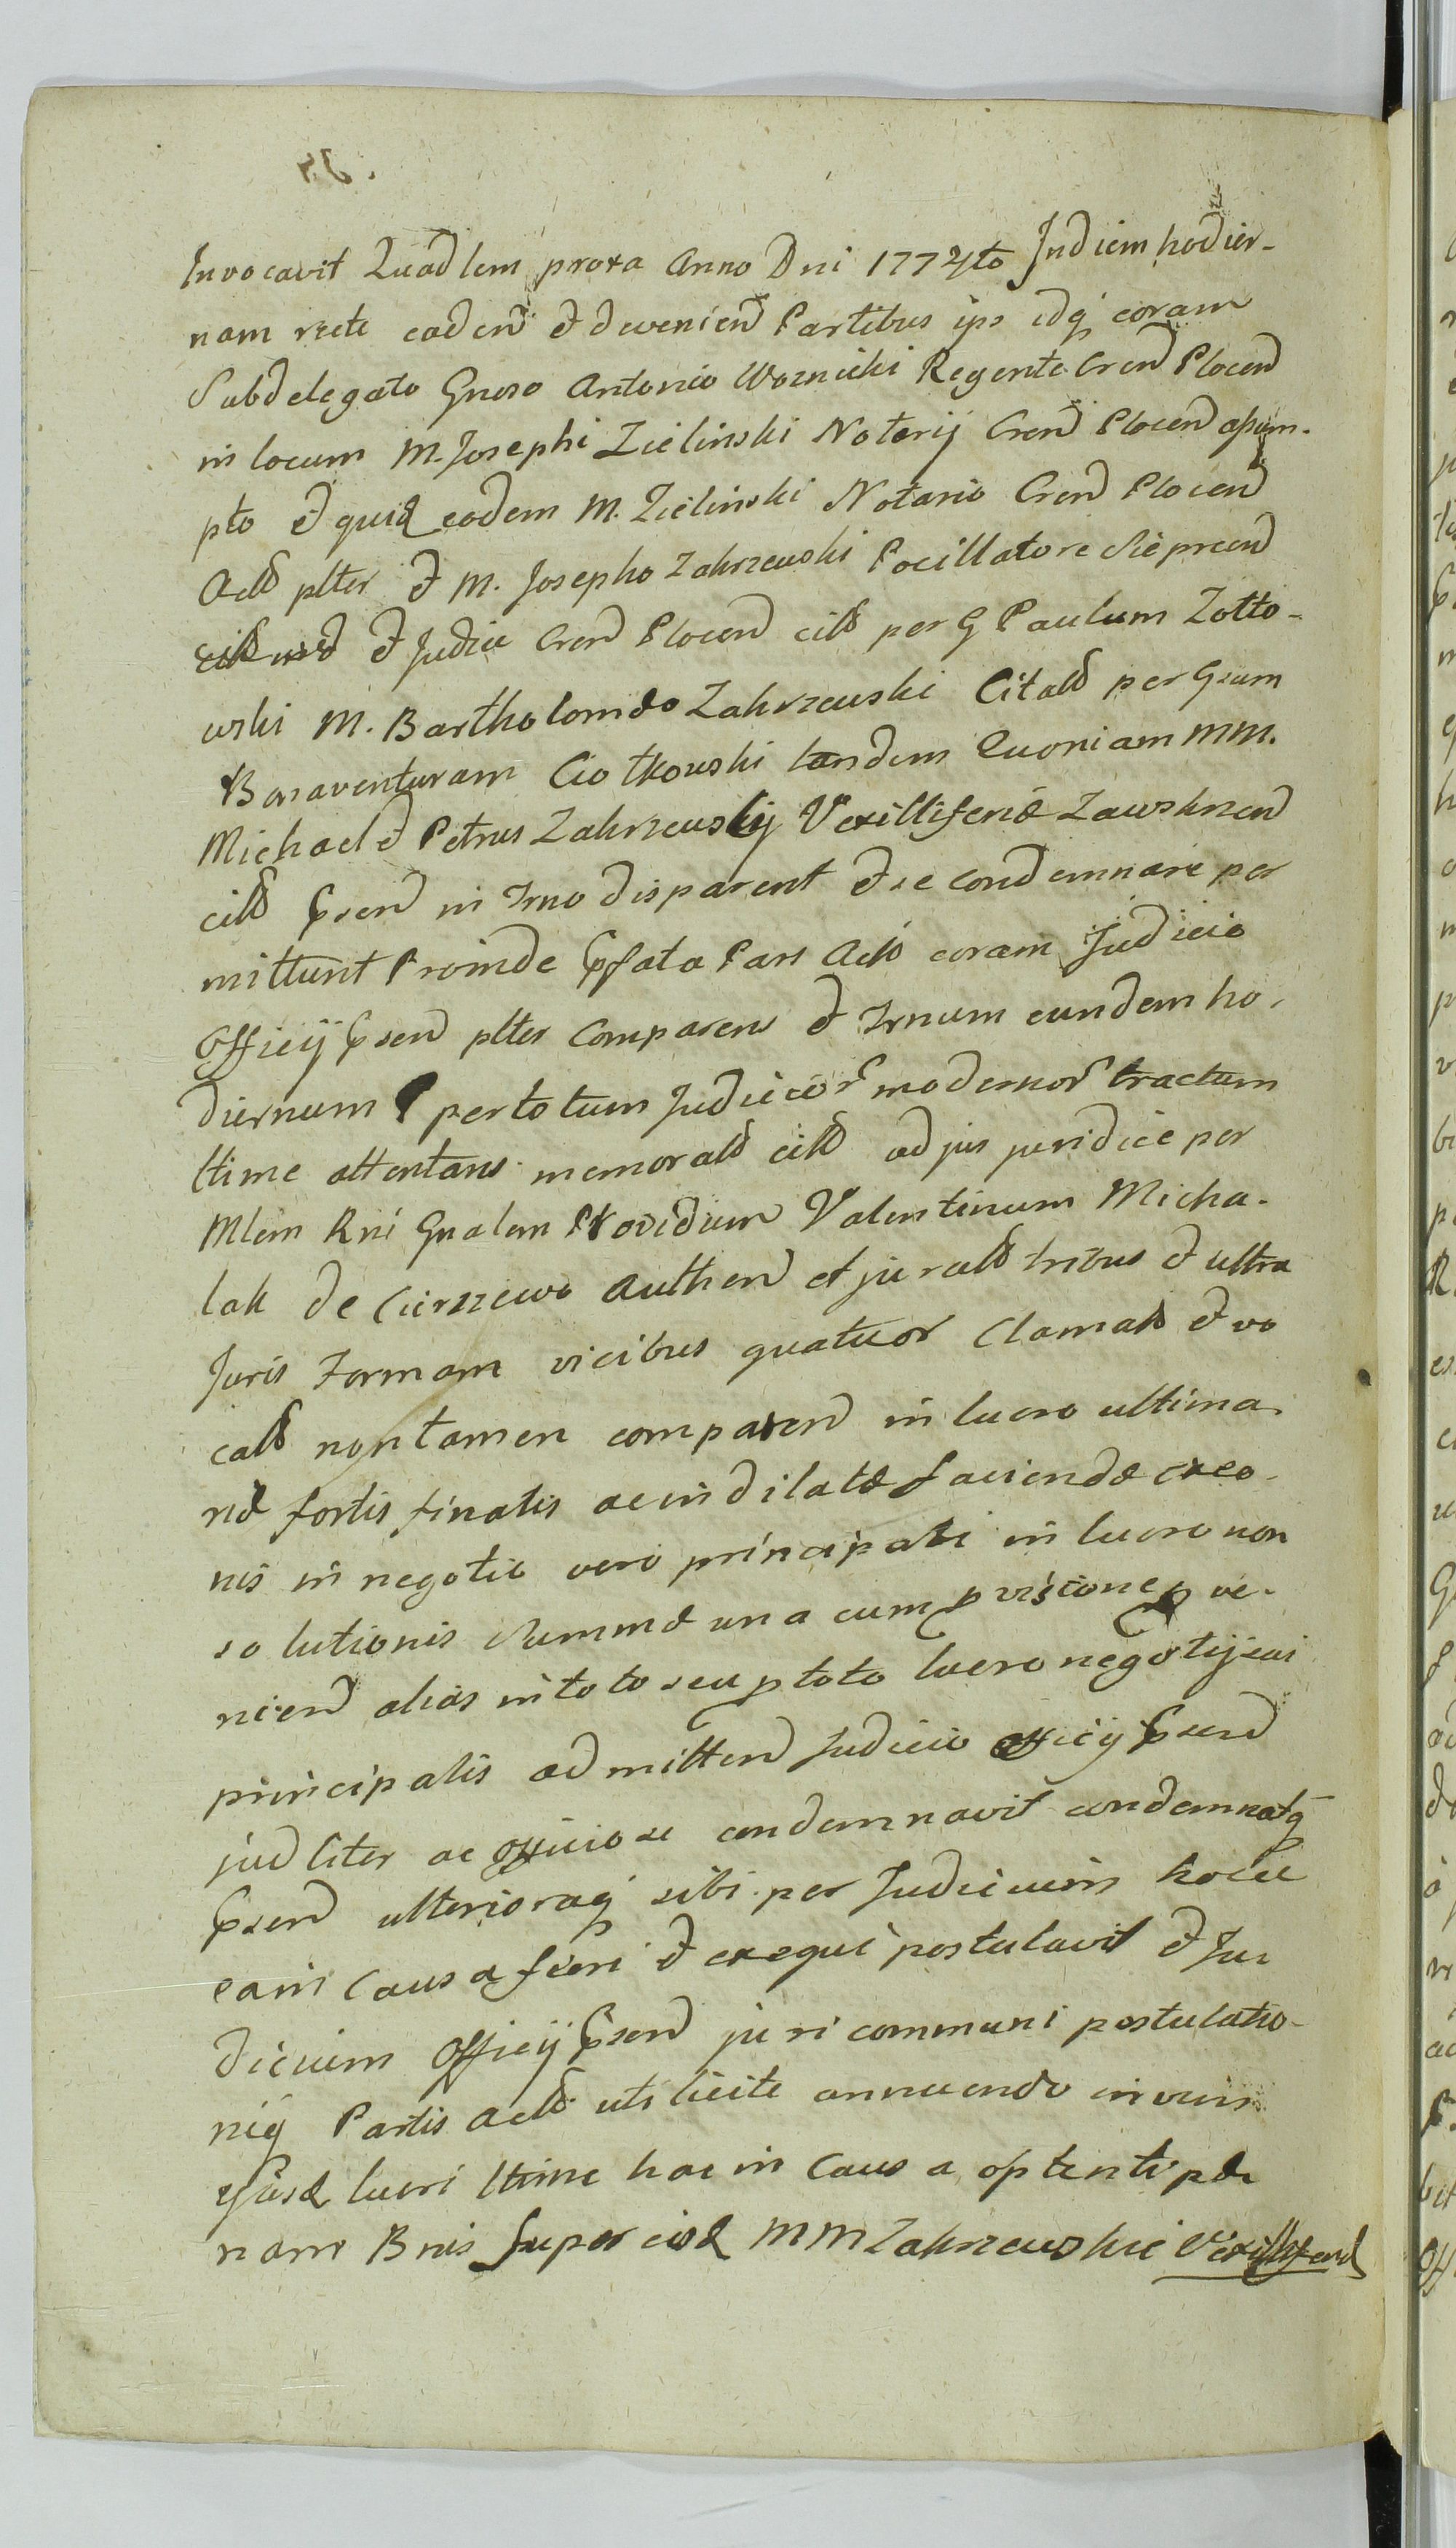 Invocavit Quadlem proxa Anno Dni 1774to In diem hodier-
nam recte cadend et deveniend Partibus ips idq coram
Subdelegato Gnoso Antonio Woznicki Regente Crend Plocend
in locum M. Josephi Zielinski Notarij Crend Plocend assum-
pto et quid eodem M. Zielinski Notario Crend Plocend
Actt plter et M. Josepho Zakrzewski Pocillatore Sieprcend
et Judice Crend Plocend citt per G Paulum Zotto-
wski M. Bartholomeo Zakrzewski Citatt per Gsum
Bonaventuram Ciotkowski tandem Quoniam MM.
Michael et Petrus Zakrzewskij Vexilliferidæ Zawskrzend
citt Psend in Trno disparent et se condemnare per
mittunt Proinde Pfata Pars Act coram Judicio
Officij Psend plter Comparens et Trnum eundem ho-
diernum per totum Judicior modernor tractum
ltime attentans memoratt citt ad jus juridice per
Mlem Rni Gnalem Providum Valentinum Micha-
lak de Cierszewo Authend et juratt tribus et ultra
Juris Formam vicibus quatuor Clamatt et vo
catt non tamen comparend in lucro ultima
riæ sortis finalis ac indilatæ faciendæ exeo-
nis in negotio vero principali in lucro non
solutionis Summæ una cum pvisione p ve-
niend alias in toto seu ptoto lucro negotij sui
principalis admittend Judicio officij Psend
judliter ac officiose condemnavit condemnatq
Psend ulterioraq sibi per Judicium hocce
eam Causa fieri et exequi postulavit et Ju
dicium Officij Psend juri communi postulatio-
niq Partis actt uti licite annuendo in vim
ejusd lucri ltime hac in Causa optenti pæ
nam Bnis super eisd MM Zakrzewskie Vexilliferid